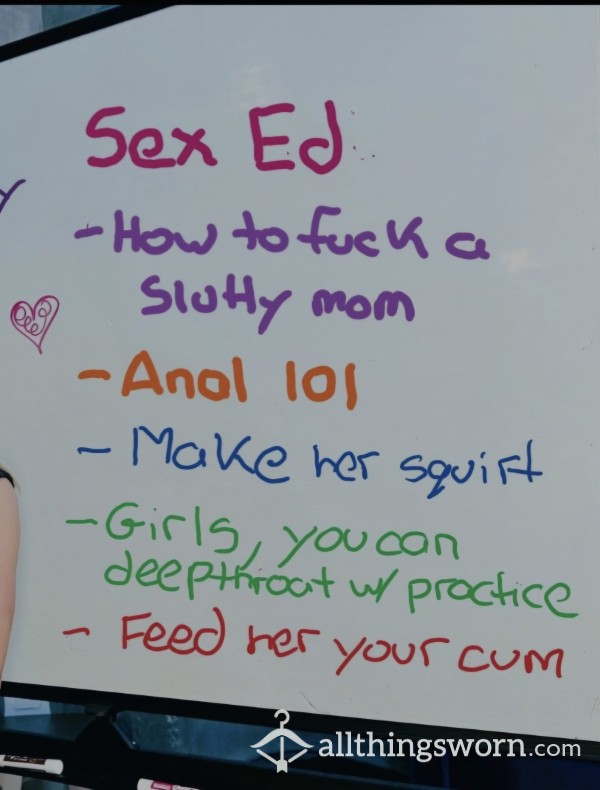 Sex Ed
- How to fuck a
slutty mom
- Anal 101
- Make her squirt
- Girls, you can
deepthroat w/ practice
- Feed her your cum
allthingsworn.com